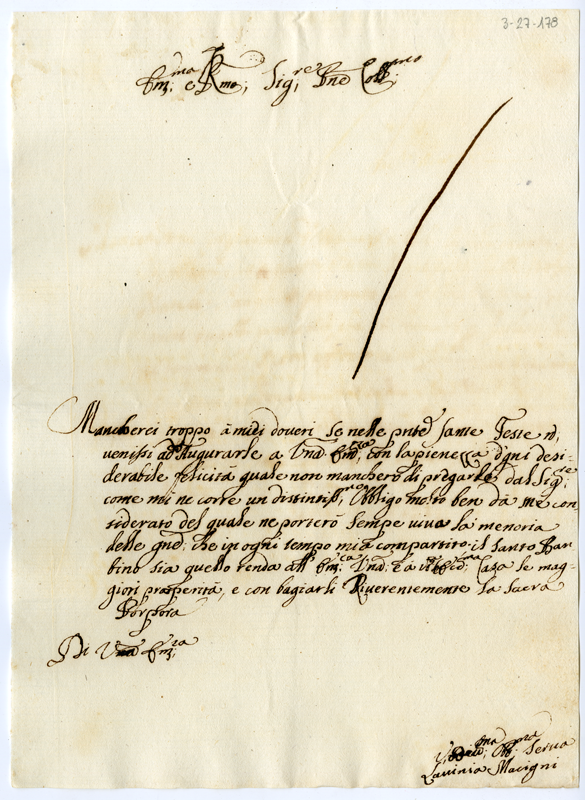 3-27-178
Em.ma e Rmo; Sig.re Pnē Coll.mo
Mancherei troppo á miei doveri se nelle pnte Sante Feste ñ
venissi ad Augurarle a Vnā Em.za con la pienezza d'ogni desi-
derabile felicitá quale non mancheró di pregarle dal Sig.re
come mi ne corre un distintiss.mo Obligo molto ben da me con
siderato del quale ne porteró sempe viva la memoria
delle che in ogni tempo mi à compartito; il Santo Bam
bino sia quello renda all Em.za Vnā Casa le mag-
giori prosperitá, e con bagiarli Riverentemente la Sacra
Porpora
Di Vnā Em.za
Serva
Lavinia Macigni